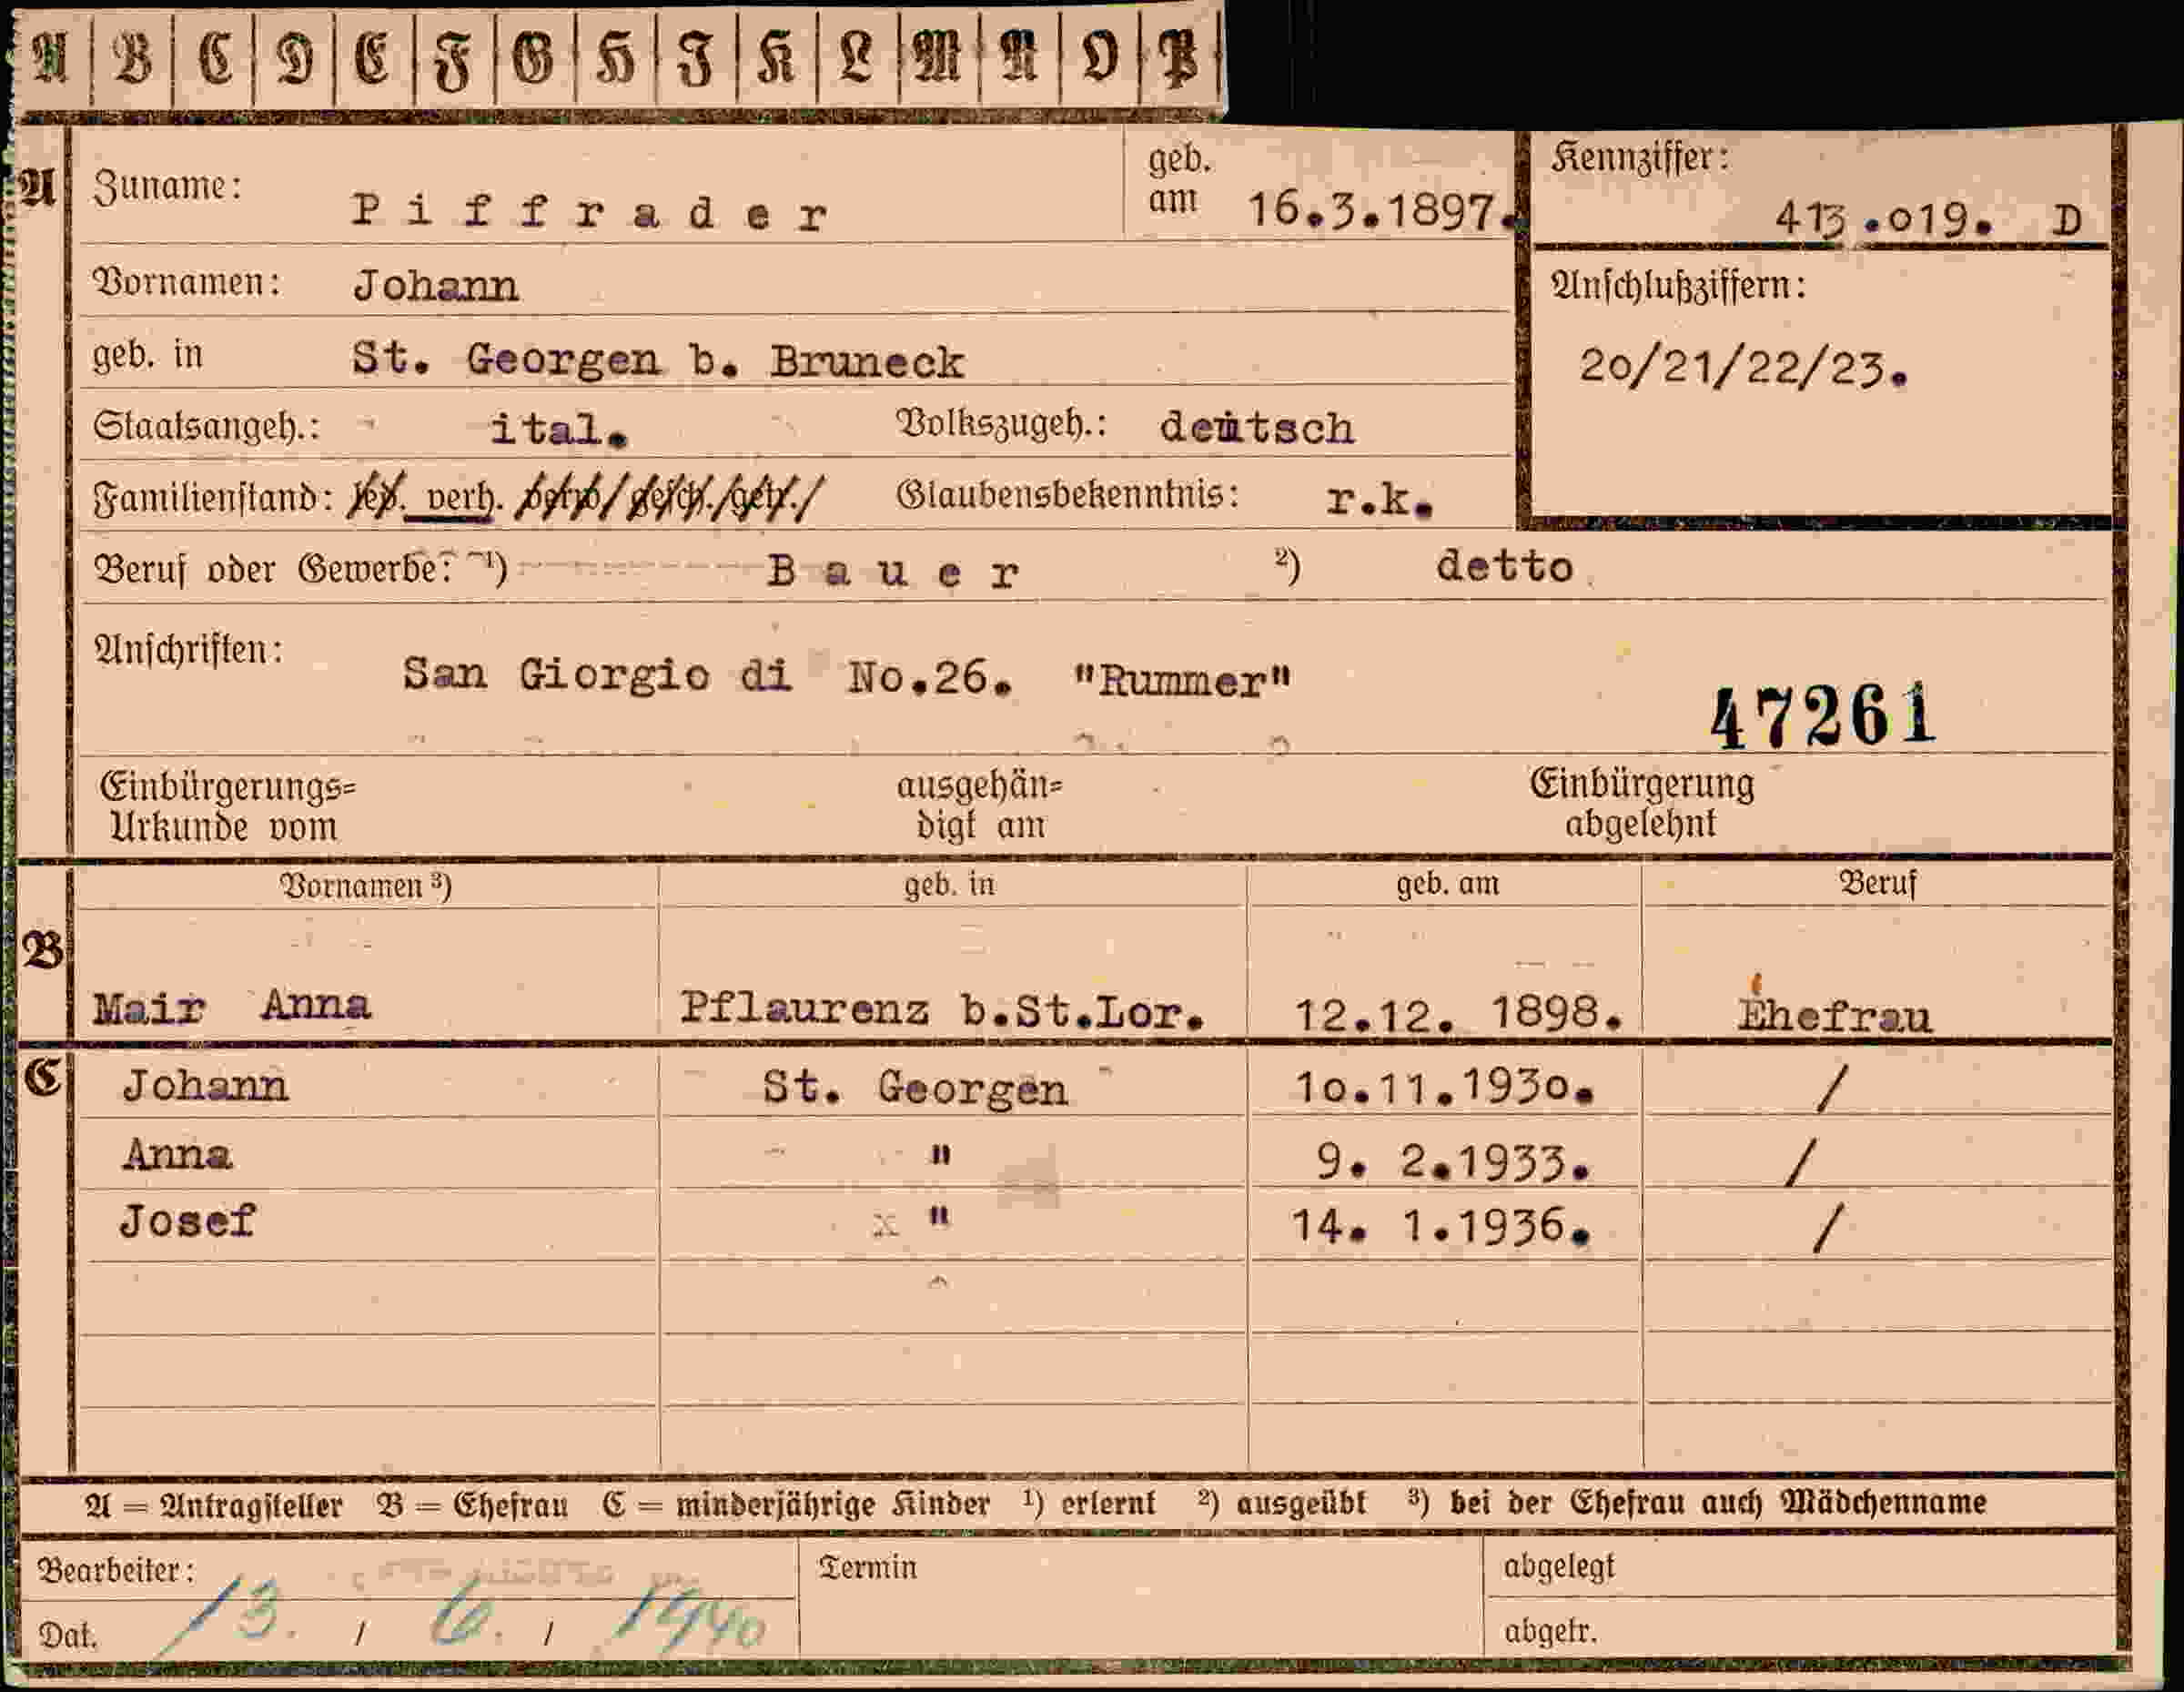 A B C D E F G H I K L M N O P
A Zuname: Piffrader geb. am 16.3.1897. Kennziffer: 413.019. D
Vornamen: Johann Anschlußziffern:
geb. in St. Georgen b. Bruneck 20/21/22/23.
Staatsangeh.: ital. Volkszugeh.: deutsch
Familienstand: led. verh. verw./gesch./getr./ Glaubensbekenntnis: r.k.
Beruf oder Gewerbe: ¹) Bauer ²) detto
Anschriften: San Giorgio di No.26. "Rummer"
47261
Einbürgerungs= ausgehän= Einbürgerung
Urkunde vom digt am abgelehnt
Vornamen ³) geb. in geb. am Beruf
B
Mair Anna Pflaurenz b.St.Lor. 12.12. 1898. Ehefrau
C Johann St. Georgen 10.11.1930. /
Anna " 9. 2.1933. /
Josef x " 14. 1.1936. /
A = Antragsteller B = Ehefrau C = minderjährige Kinder ¹) erlernt ²) ausgeübt ³) bei der Ehefrau auch Mädchenname
Bearbeiter: Termin abgelegt
Dat. 13. / 6. / 1940 abgetr.